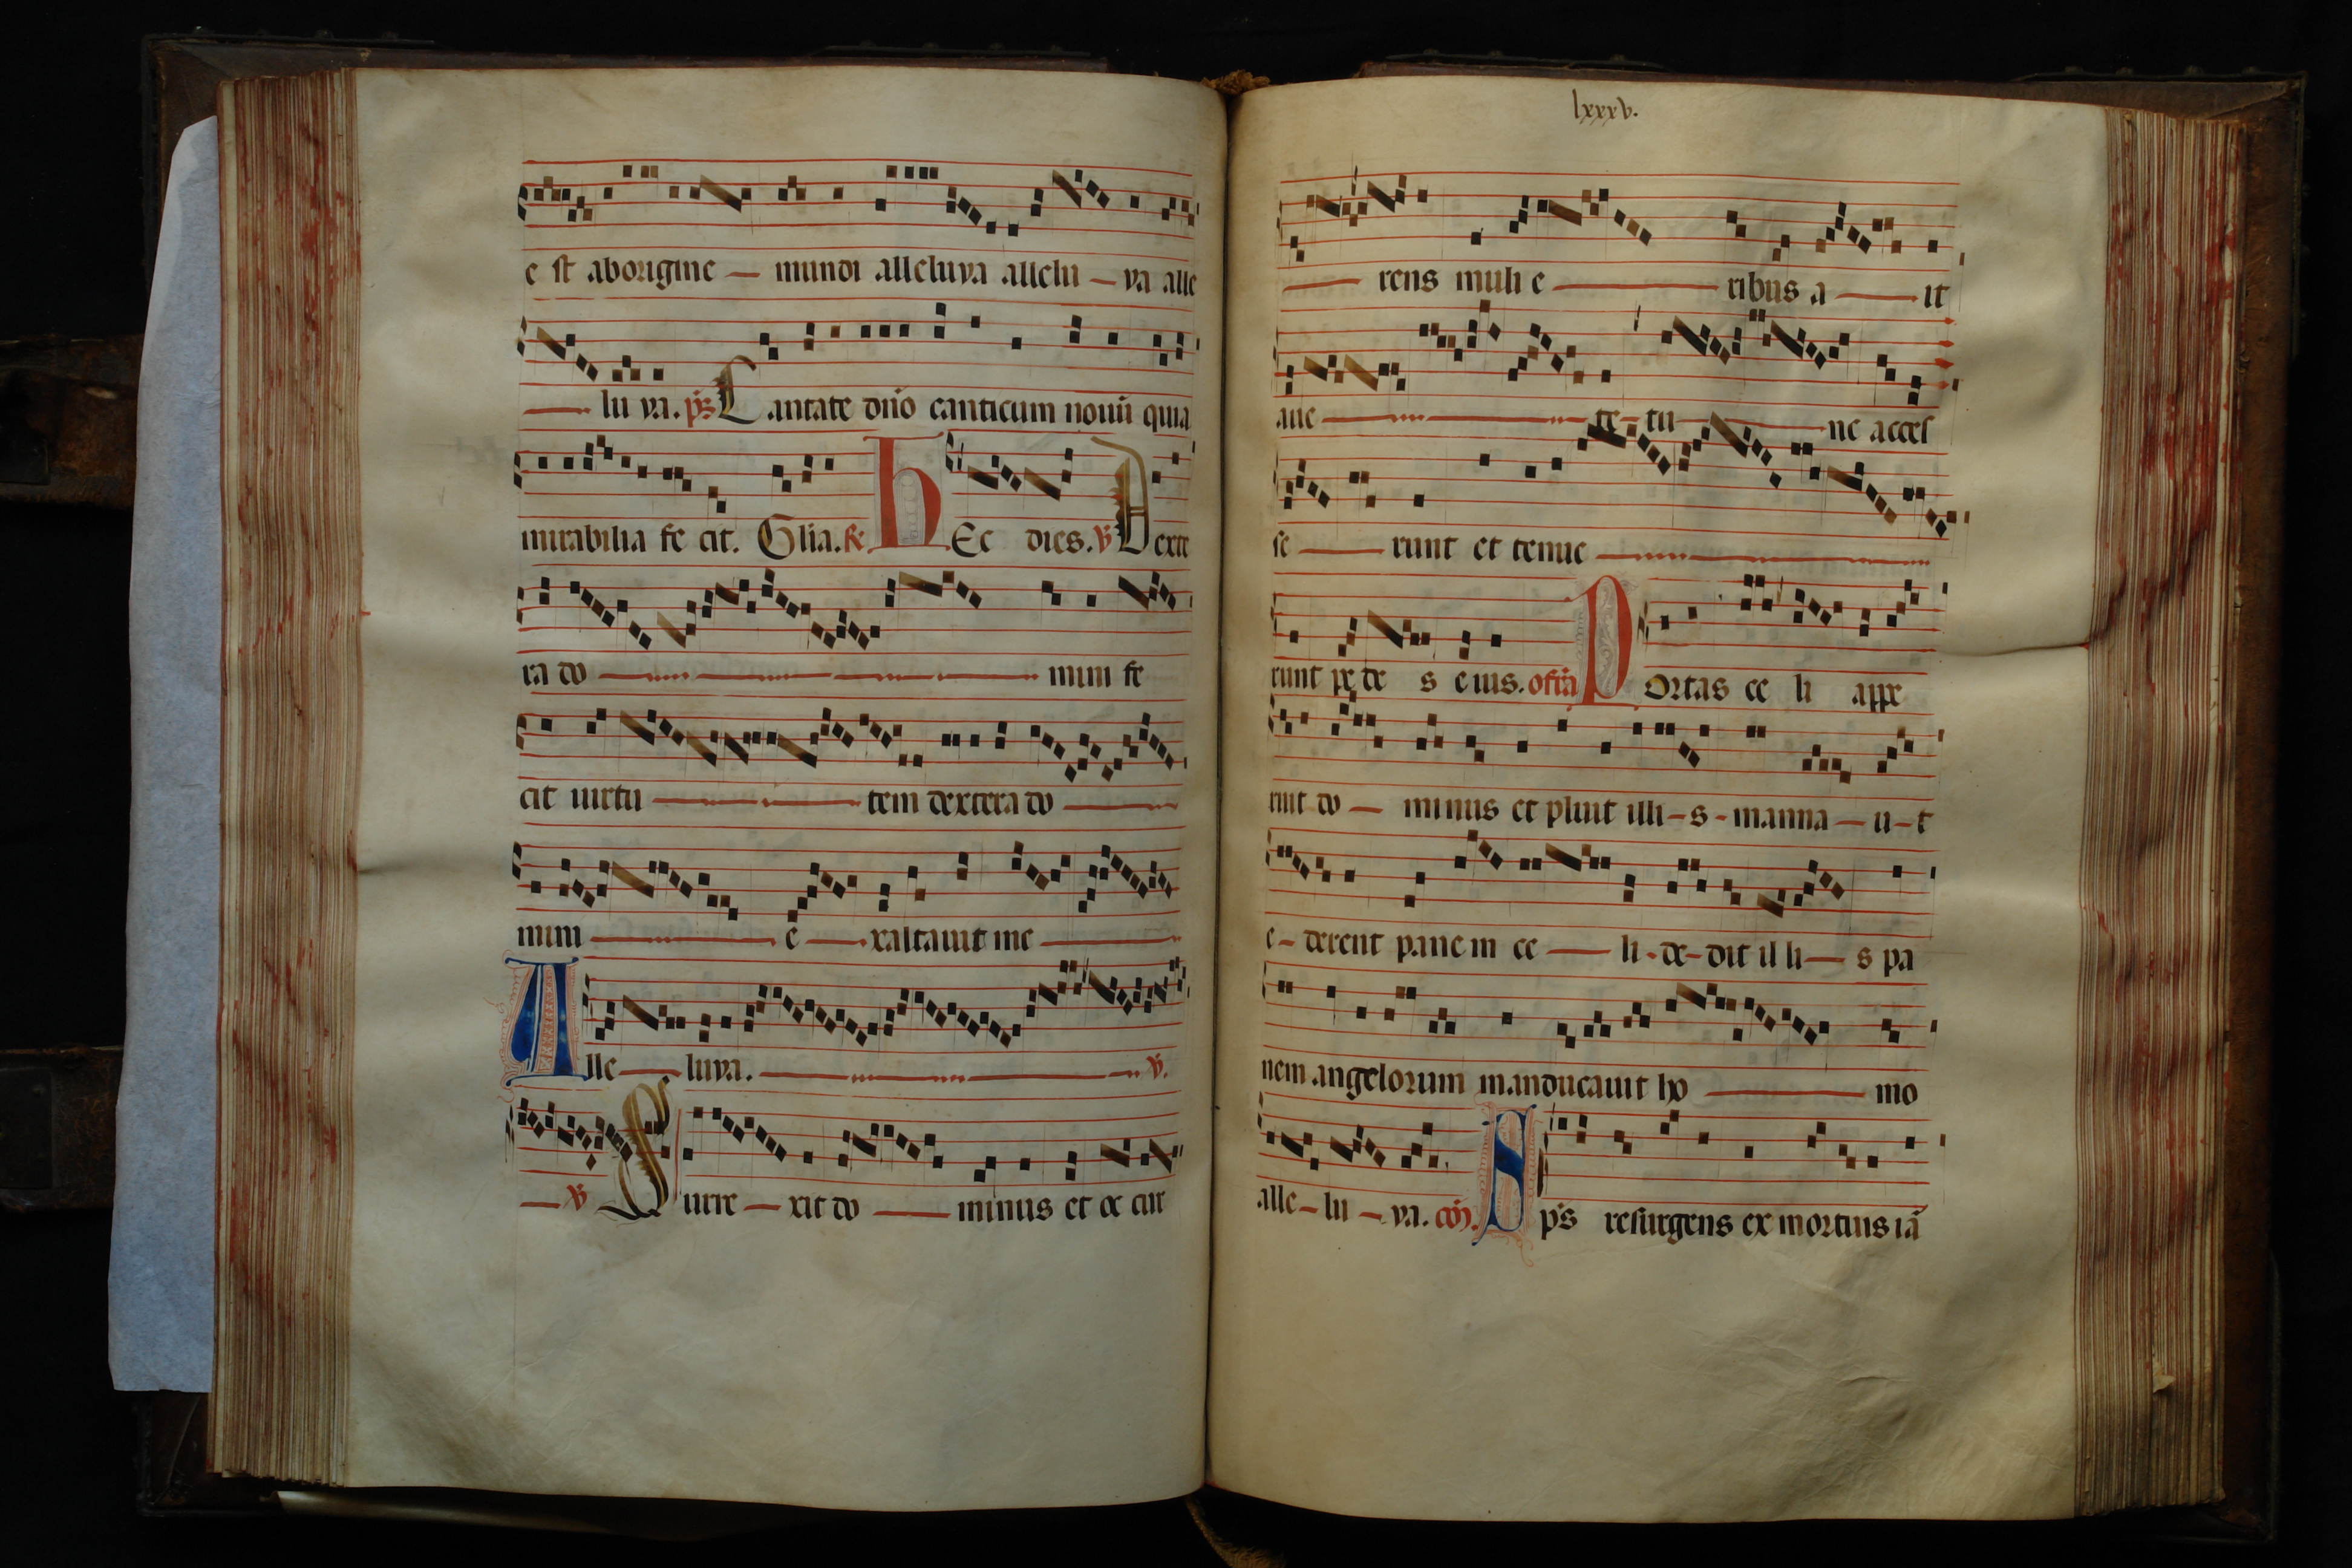 e st aborigine — mundi alleluya allelu — ya alle
— lu ya. ps Cantate dño canticum nouũ quia
mirabilia fe cit. Glia. R. hEc dies. V Dexte
ra do — mini fe
cit uirtu — tem dextera do —
mini — e — xaltauit me —
Alle — luya. — V.
— V Surre — xit do — minus et oc cur
lxxxv.
— rens muli e — ribus a — it
aue — te - tu — ne access
se — runt et tenue —
runt pede s eius. ofra Portas ce li ape
ruit do — minus et pluit illi - s - manna — u - t
e - derent panem ce — li - de - dit il li — s pa
nem angelorum manducauit ho — mo
alle - lu - ya. cõ. Xps resurgens ex mortuis iã